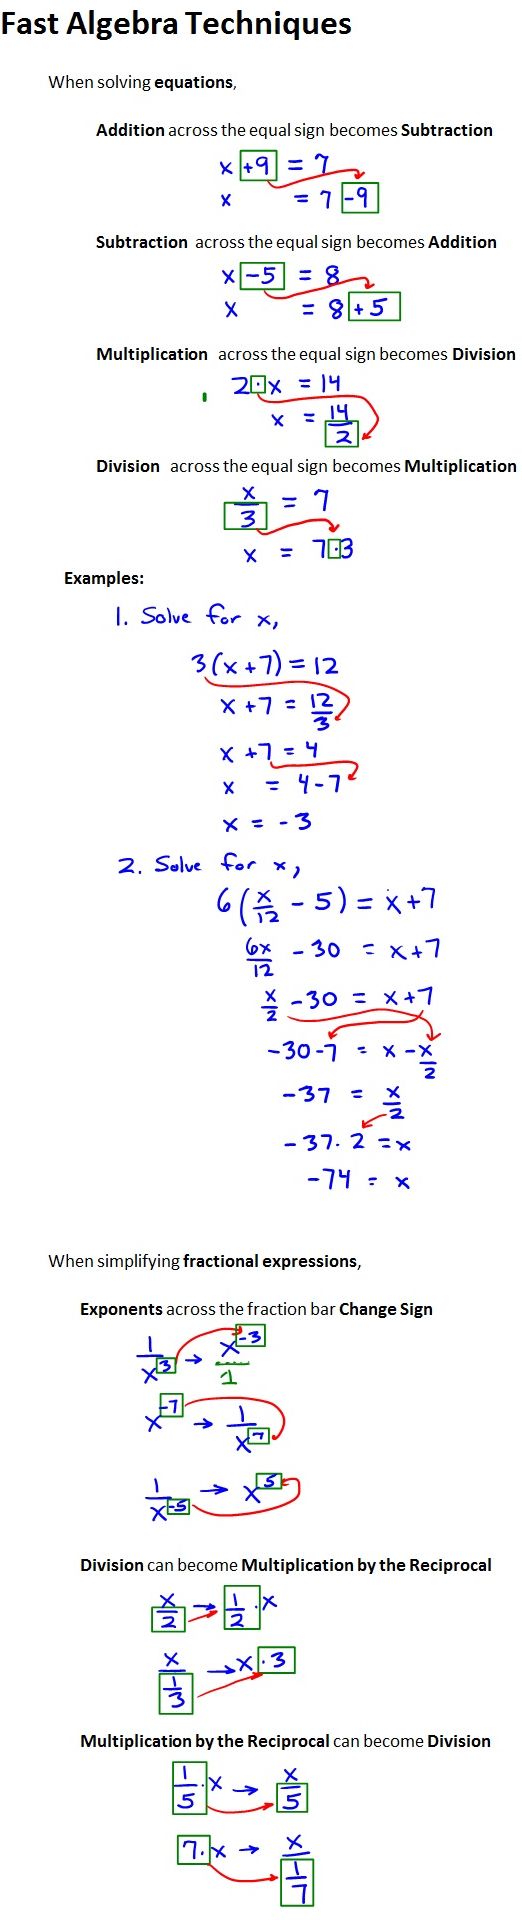 Fast Algebra Techniques
When solving equations,
Addition across the equal sign becomes Subtraction
x +9 = 7
x = 7 -9
Subtraction across the equal sign becomes Addition
x -5 = 8
x = 8 + 5
Multiplication across the equal sign becomes Division
2·x = 14
x = 14/2
Division across the equal sign becomes Multiplication
x/3 = 7
x = 7·3
Examples:
1. Solve for x,
3(x+7) = 12
x+7 = 12/3
x+7 = 4
x = 4-7
x = -3
2. Solve for x,
6(x/12 - 5) = x+7
6x/12 - 30 = x+7
x/2 - 30 = x+7
-30-7 = x - x/2
-37 = x/2
-37·2 = x
-74 = x
When simplifying fractional expressions,
Exponents across the fraction bar Change Sign
1/x^3 → x^-3/1
x^-7 → 1/x^7
1/x^-5 → x^5
Division can become Multiplication by the Reciprocal
x/2 → 1/2·x
x/(1/3) → x·3
Multiplication by the Reciprocal can become Division
1/5·x → x/5
7·x → x/(1/7)